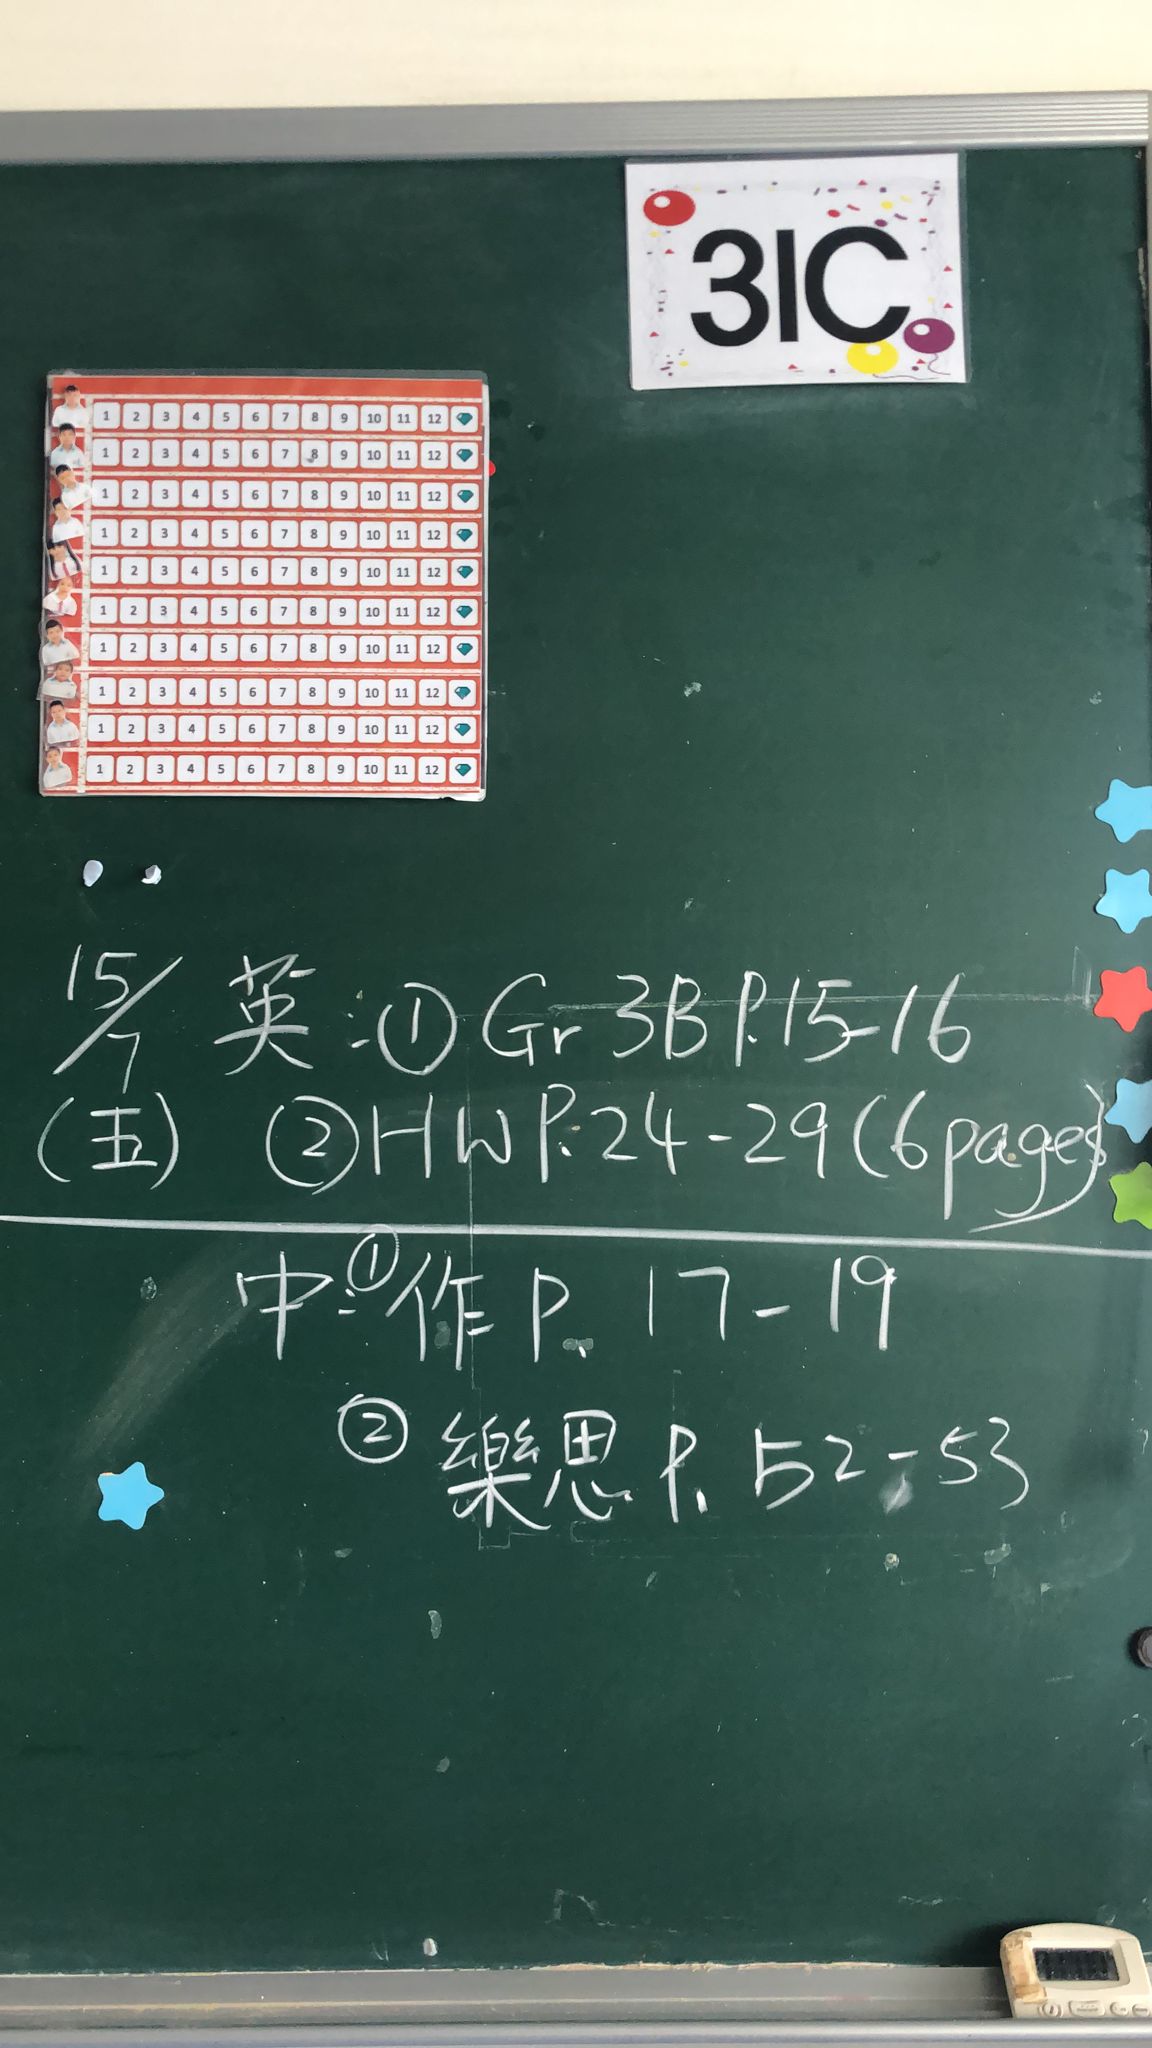 3IC
1 2 3 4 5 6 7 8 9 10 11 12
1 2 3 4 5 6 7 8 9 10 11 12
1 2 3 4 5 6 7 8 9 10 11 12
1 2 3 4 5 6 7 8 9 10 11 12
1 2 3 4 5 6 7 8 9 10 11 12
1 2 3 4 5 6 7 8 9 10 11 12
1 2 3 4 5 6 7 8 9 10 11 12
1 2 3 4 5 6 7 8 9 10 11 12
1 2 3 4 5 6 7 8 9 10 11 12
1 2 3 4 5 6 7 8 9 10 11 12
15/7 英:① Gr 3B P.15-16
(五) ② HW P.24-29 (6 pages)
中:① 作 P. 17-19
② 樂思 P. 52-53